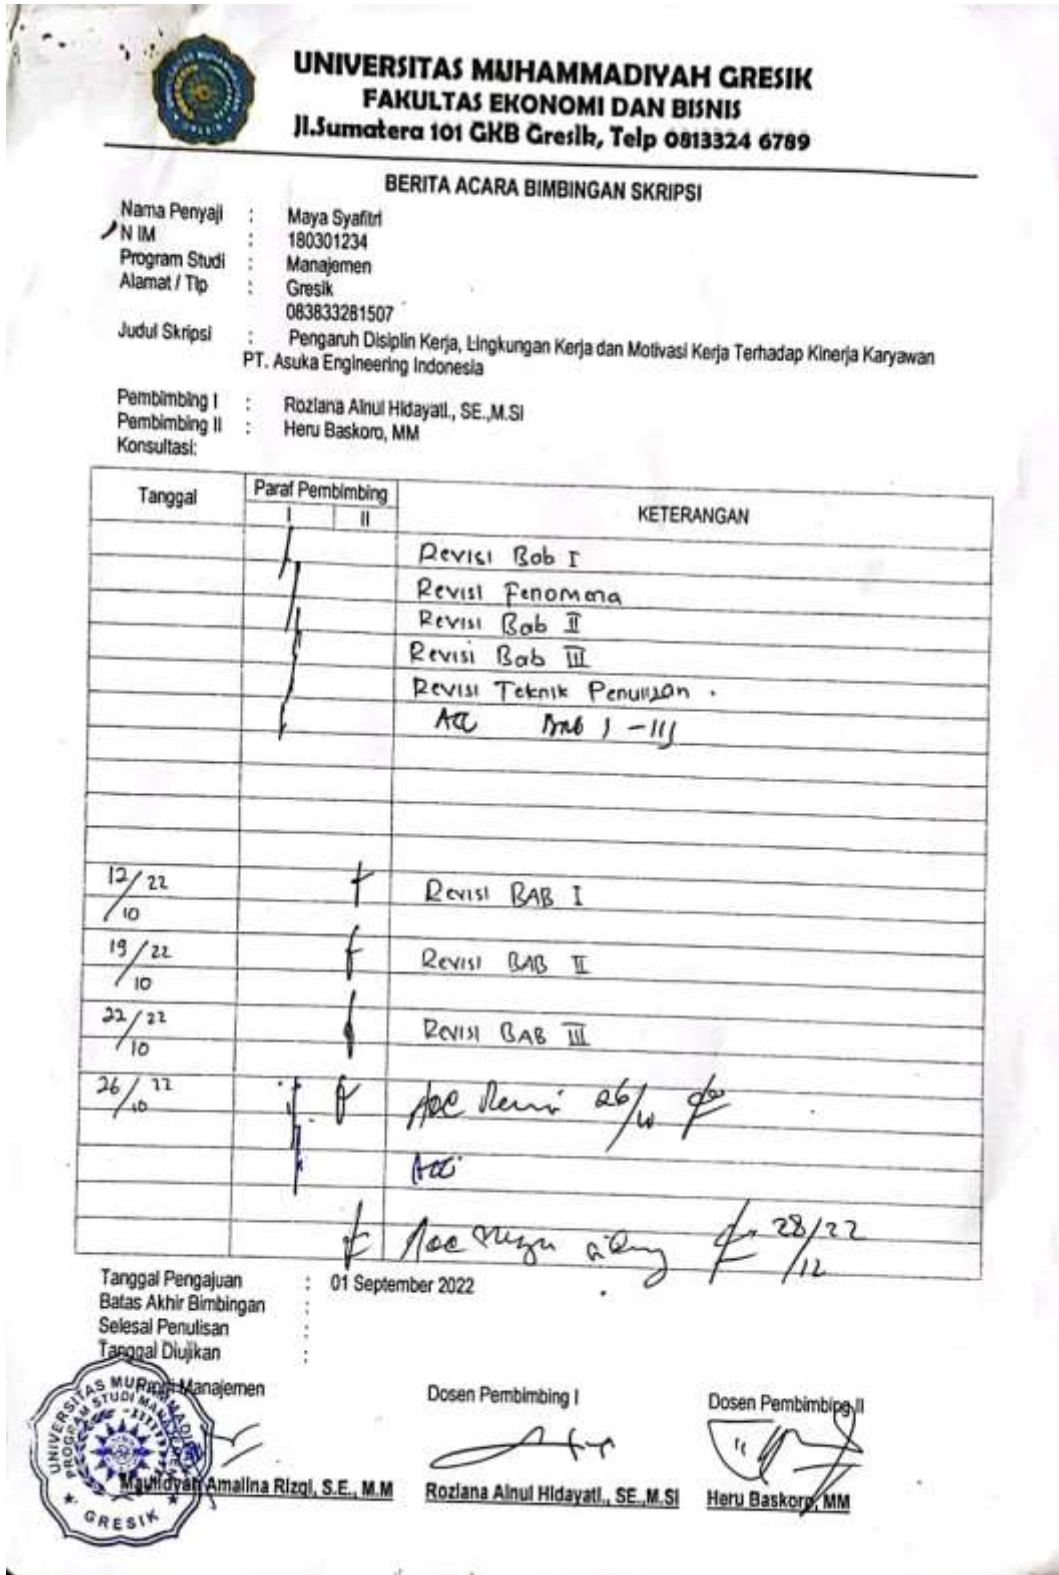 UNIVERSITAS MUHAMMADIYAH GRESIK
FAKULTAS EKONOMI DAN BISNIS
Jl.Sumatera 101 GKB Gresik, Telp 0813324 6789
BERITA ACARA BIMBINGAN SKRIPSI
Nama Penyaji : Maya Syafitri
N IM : 180301234
Program Studi : Manajemen
Alamat / Tlp : Gresik
083833281507
Judul Skripsi : Pengaruh Disiplin Kerja, Lingkungan Kerja dan Motivasi Kerja Terhadap Kinerja Karyawan
PT. Asuka Engineering Indonesia
Pembimbing I : Roziana Ainul Hidayati., SE.,M.SI
Pembimbing II : Heru Baskoro, MM
Konsultasi:
Tanggal Paraf Pembimbing KETERANGAN
I II
Revisi Bab I
Revisi Fenomena
Revisi Bab II
Revisi Bab III
Revisi Teknik Penulisan .
ACC BAB I - III
12/10 22 Revisi BAB I
19/10 22 Revisi BAB II
22/10 22 Revisi BAB III
26/10 22 Acc 26/10
Acc
Acc 28/12 22
Tanggal Pengajuan : 01 September 2022
Batas Akhir Bimbingan :
Selesai Penulisan :
Tanggal Diujikan :
Manajemen Dosen Pembimbing I Dosen Pembimbing II
Maulidyah Amalina Rizqi, S.E., M.M Roziana Ainul Hidayati., SE.,M.SI Heru Baskoro, MM
UNIVERSITAS MUHAMMADIYAH
PROGRAM STUDI MANAJEMEN
GRESIK